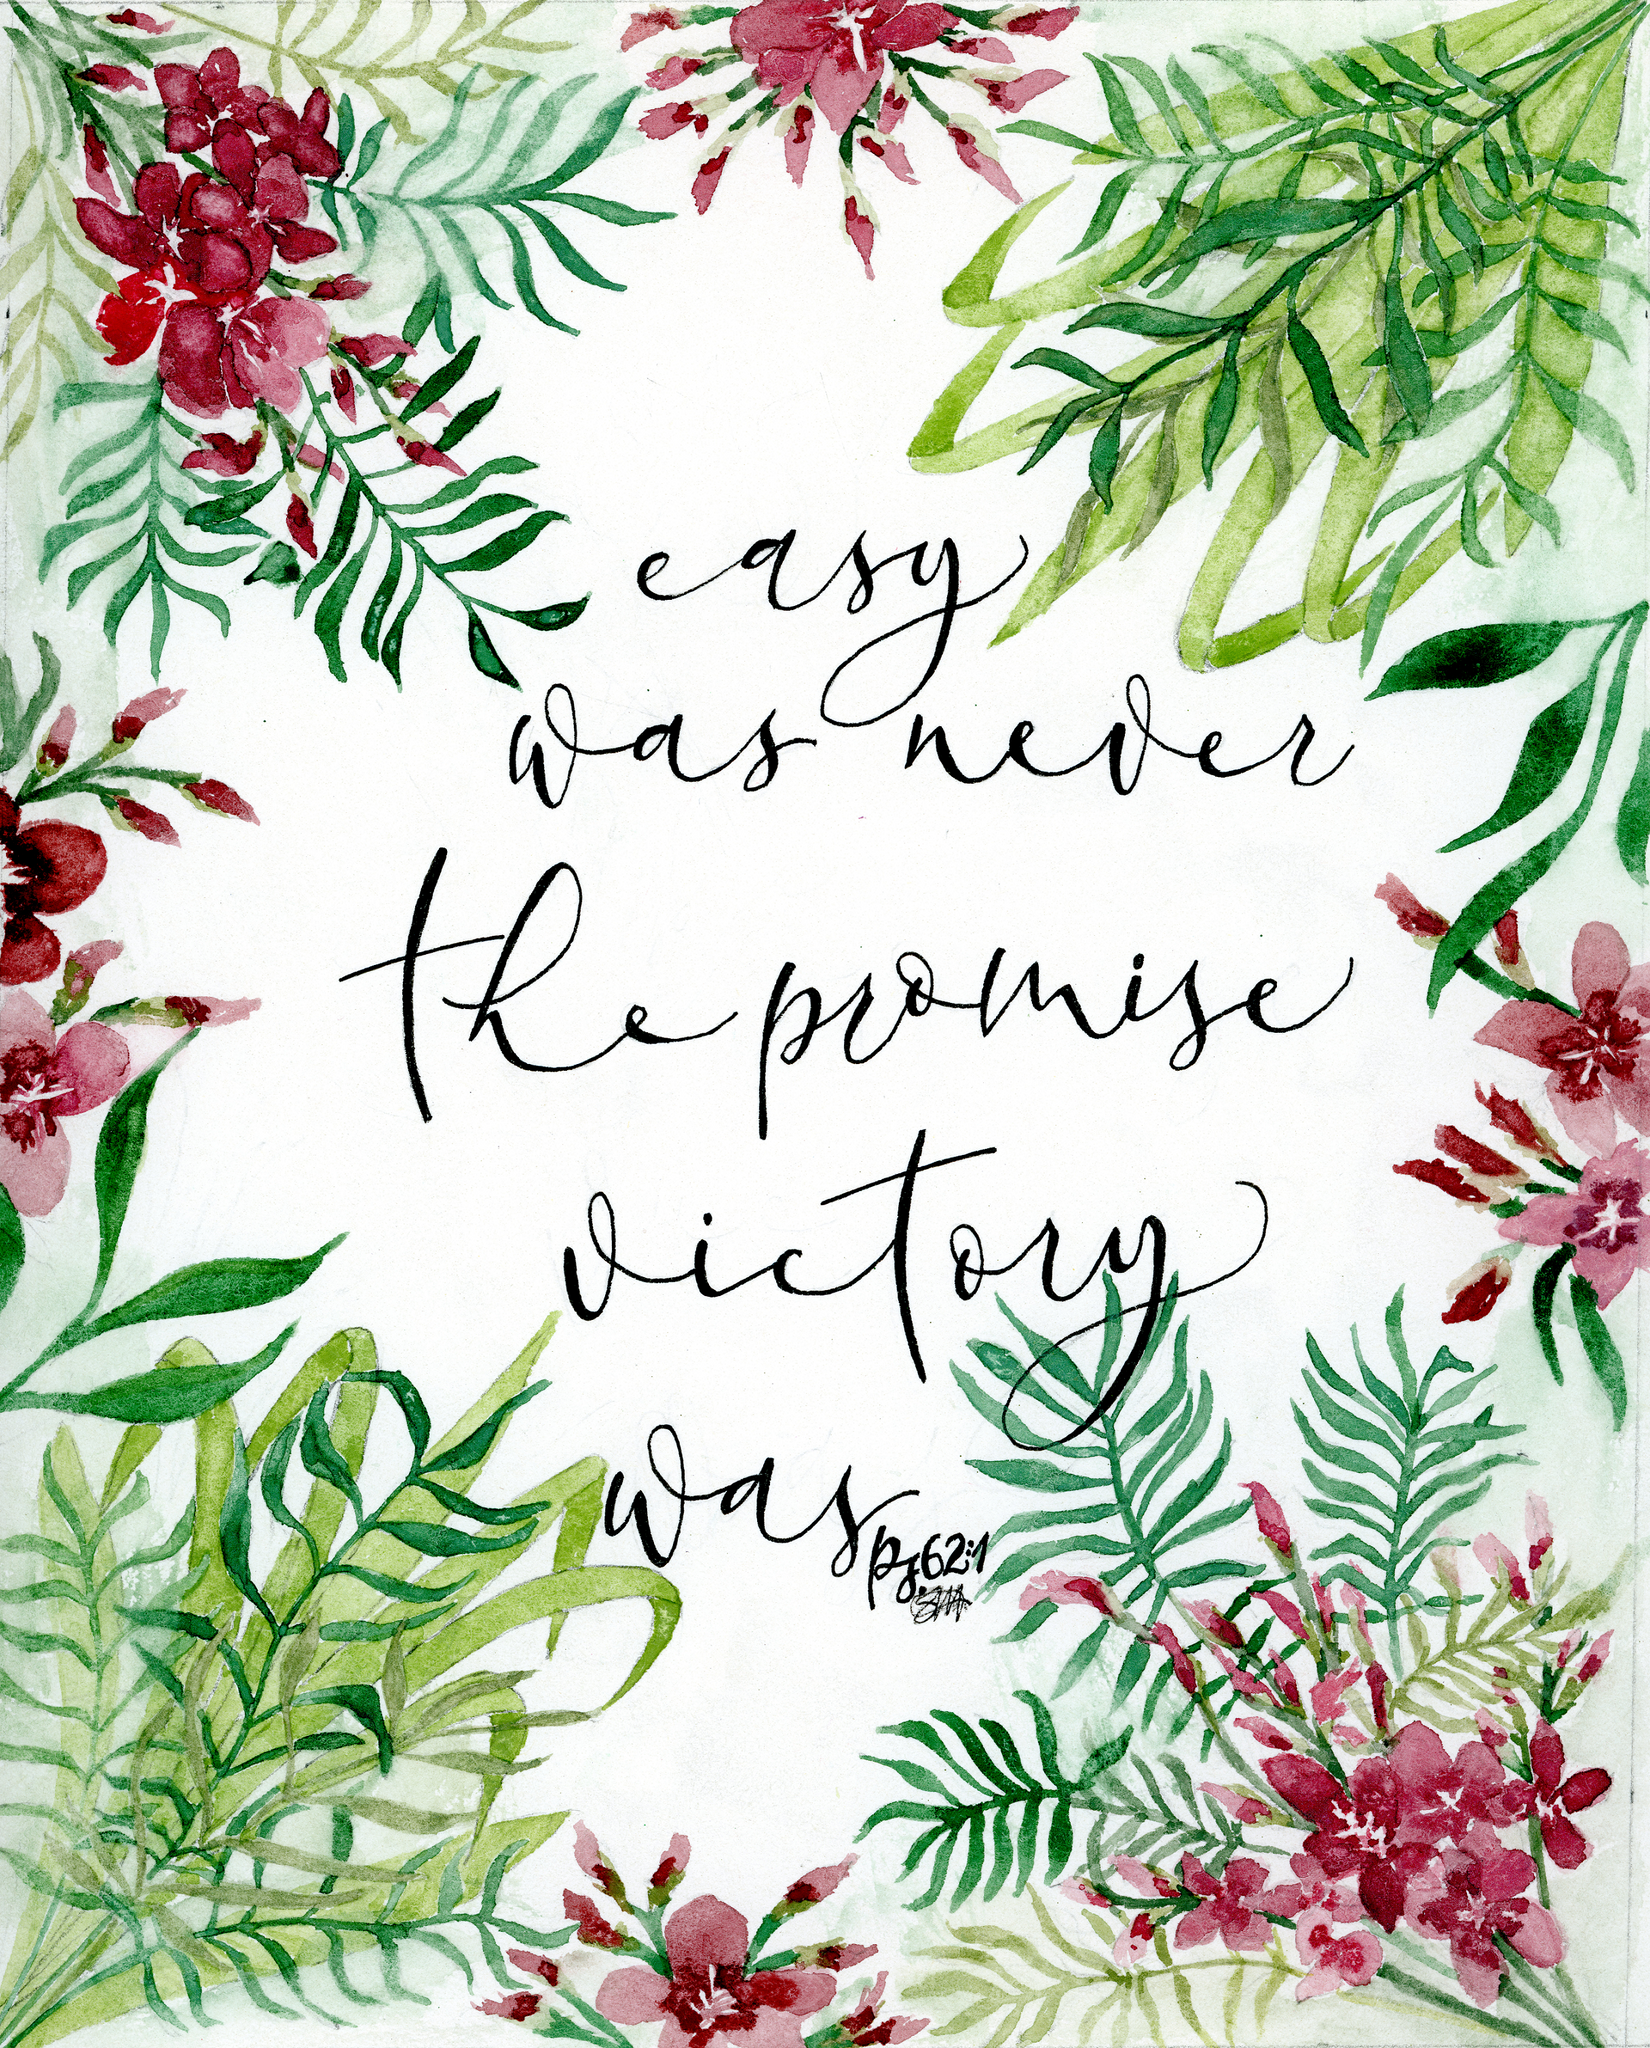 easy
was never
the promise
victory
was
ps 62:1